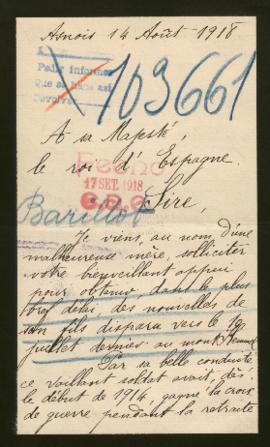 Asnois 14 Août 1918
Pedir informes
Que se hace así
109661
A sa Majesté,
le roi d'Espagne.
Fecho
17 SET. 1918
Barillot
Sire,
Je viens, au nom d'une
malheureuse mère, solliciter
votre bienveillant appui
pour obtenir, dans le plus
bref délai, des nouvelles de
son fils disparu vers le 19
juillet dernier au mont
Par sa belle conduite
ce vaillant soldat avait, dès
le début de 1914, gagné la croix
de guerre pendant la retraite